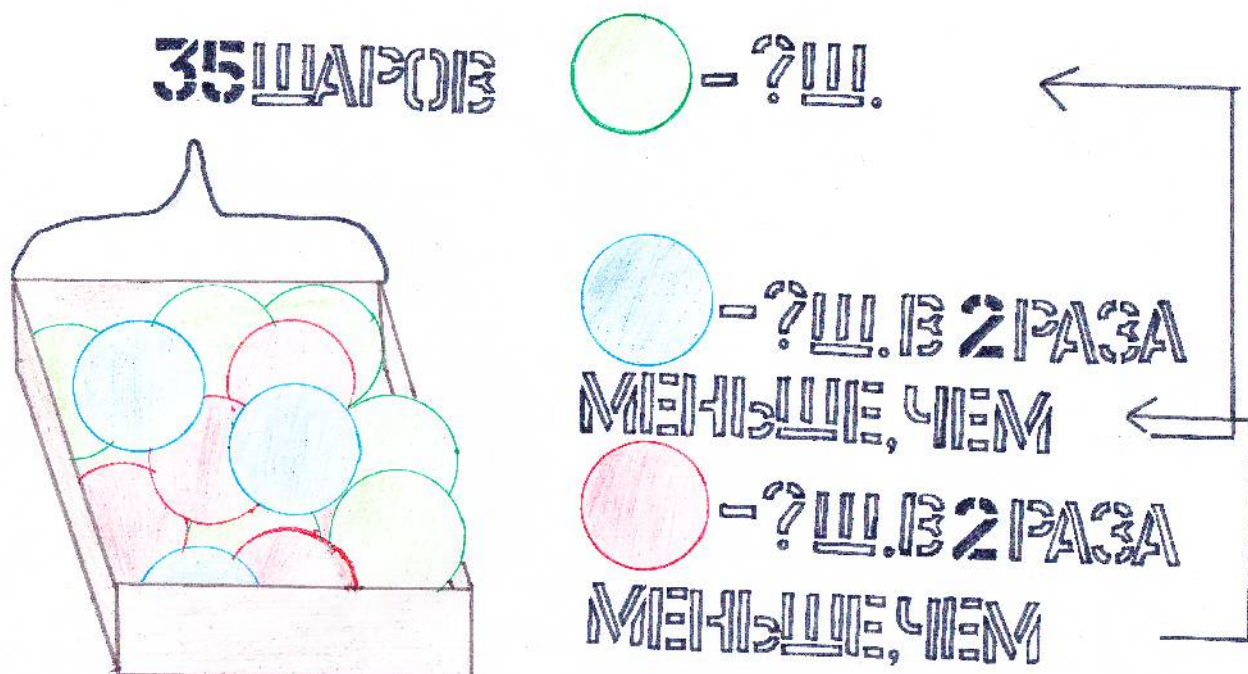 35 ШАРОВ
- ? Ш.
- ? Ш. В 2 РАЗА
МЕНЬШЕ, ЧЕМ
- ? Ш. В 2 РАЗА
МЕНЬШЕ, ЧЕМ